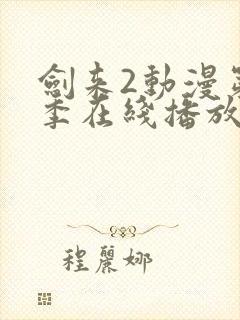 劍來2動漫第
季在綫播放
程麗娜